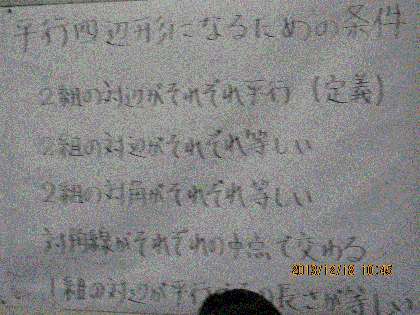 平行四辺形になるための条件
2組の対辺がそれぞれ平行 (定義)
2組の対辺がそれぞれ等しい
2組の対角がそれぞれ等しい
対角線がそれぞれの中点で交わる
1組の対辺が平行 の長さが等しい